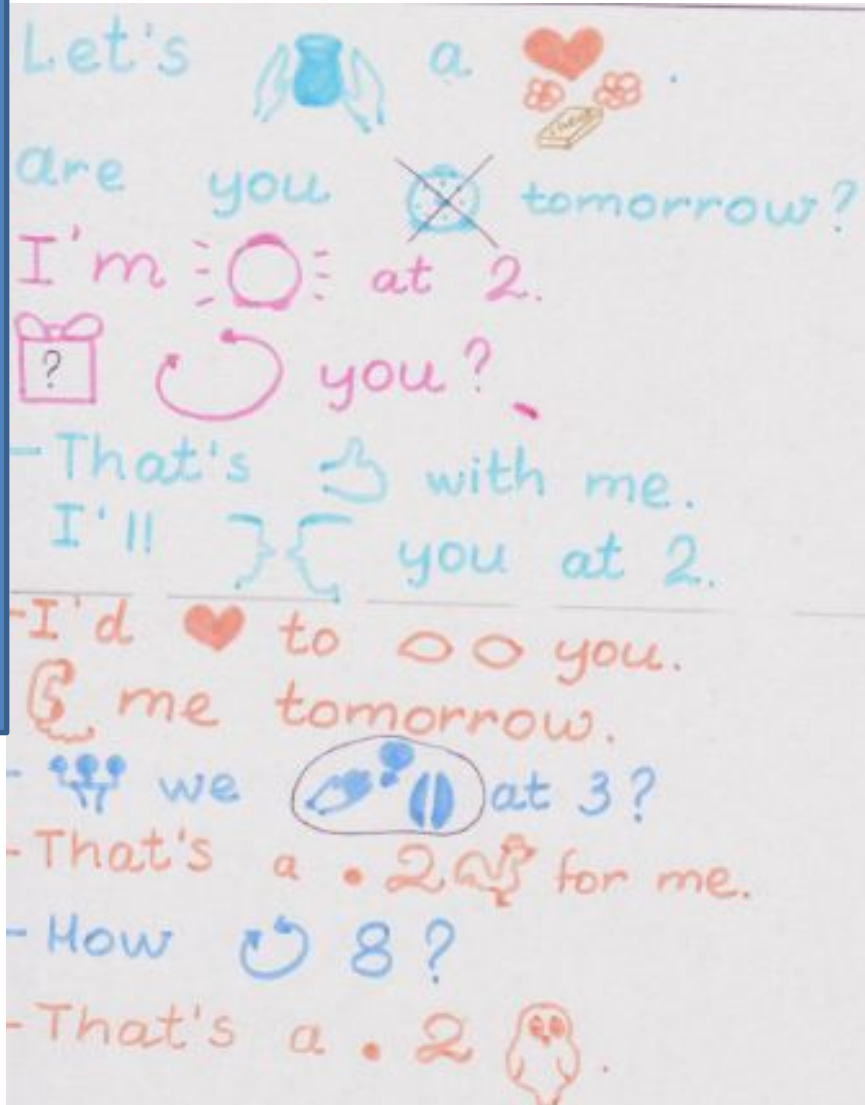 Let's a .
are you tomorrow?
I'm at 2.
? you?
- That's with me.
I'll you at 2.
- I'd to you.
me tomorrow.
- we at 3?
- That's a . 2 for me.
- How 8?
- That's a . 2 .